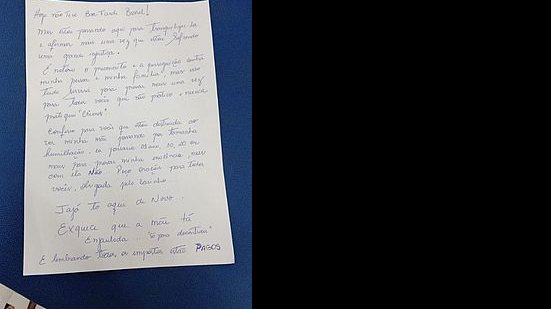 Hoje não tive Boa Tarde Brasil!
Mas estou passando aqui para tranquilizá-los
e afirmar mais uma vez que estou sofrendo
uma grande injustiça.
É notório o preconceito e a perseguição contra
minha pessoa e minha família, mas isso
tudo servirá para provar mais uma vez
para todos vocês que não pratico e nunca
pratiquei "Crimes".
Confesso para vocês que estou destruída ao
ver minha mãe passando por tamanha
humilhação, eu passaria 01 ano, 10, 20 ou
mais para provar minha inocência, mas
com ela Não. Peço orações para todos
vocês, obrigada pelo carinho.
Jajá to aqui de Novo.
Exquece que a mãe tá
Enjaulada... "só para descontrair"
E lembrando todos os impostos estão PAGOS